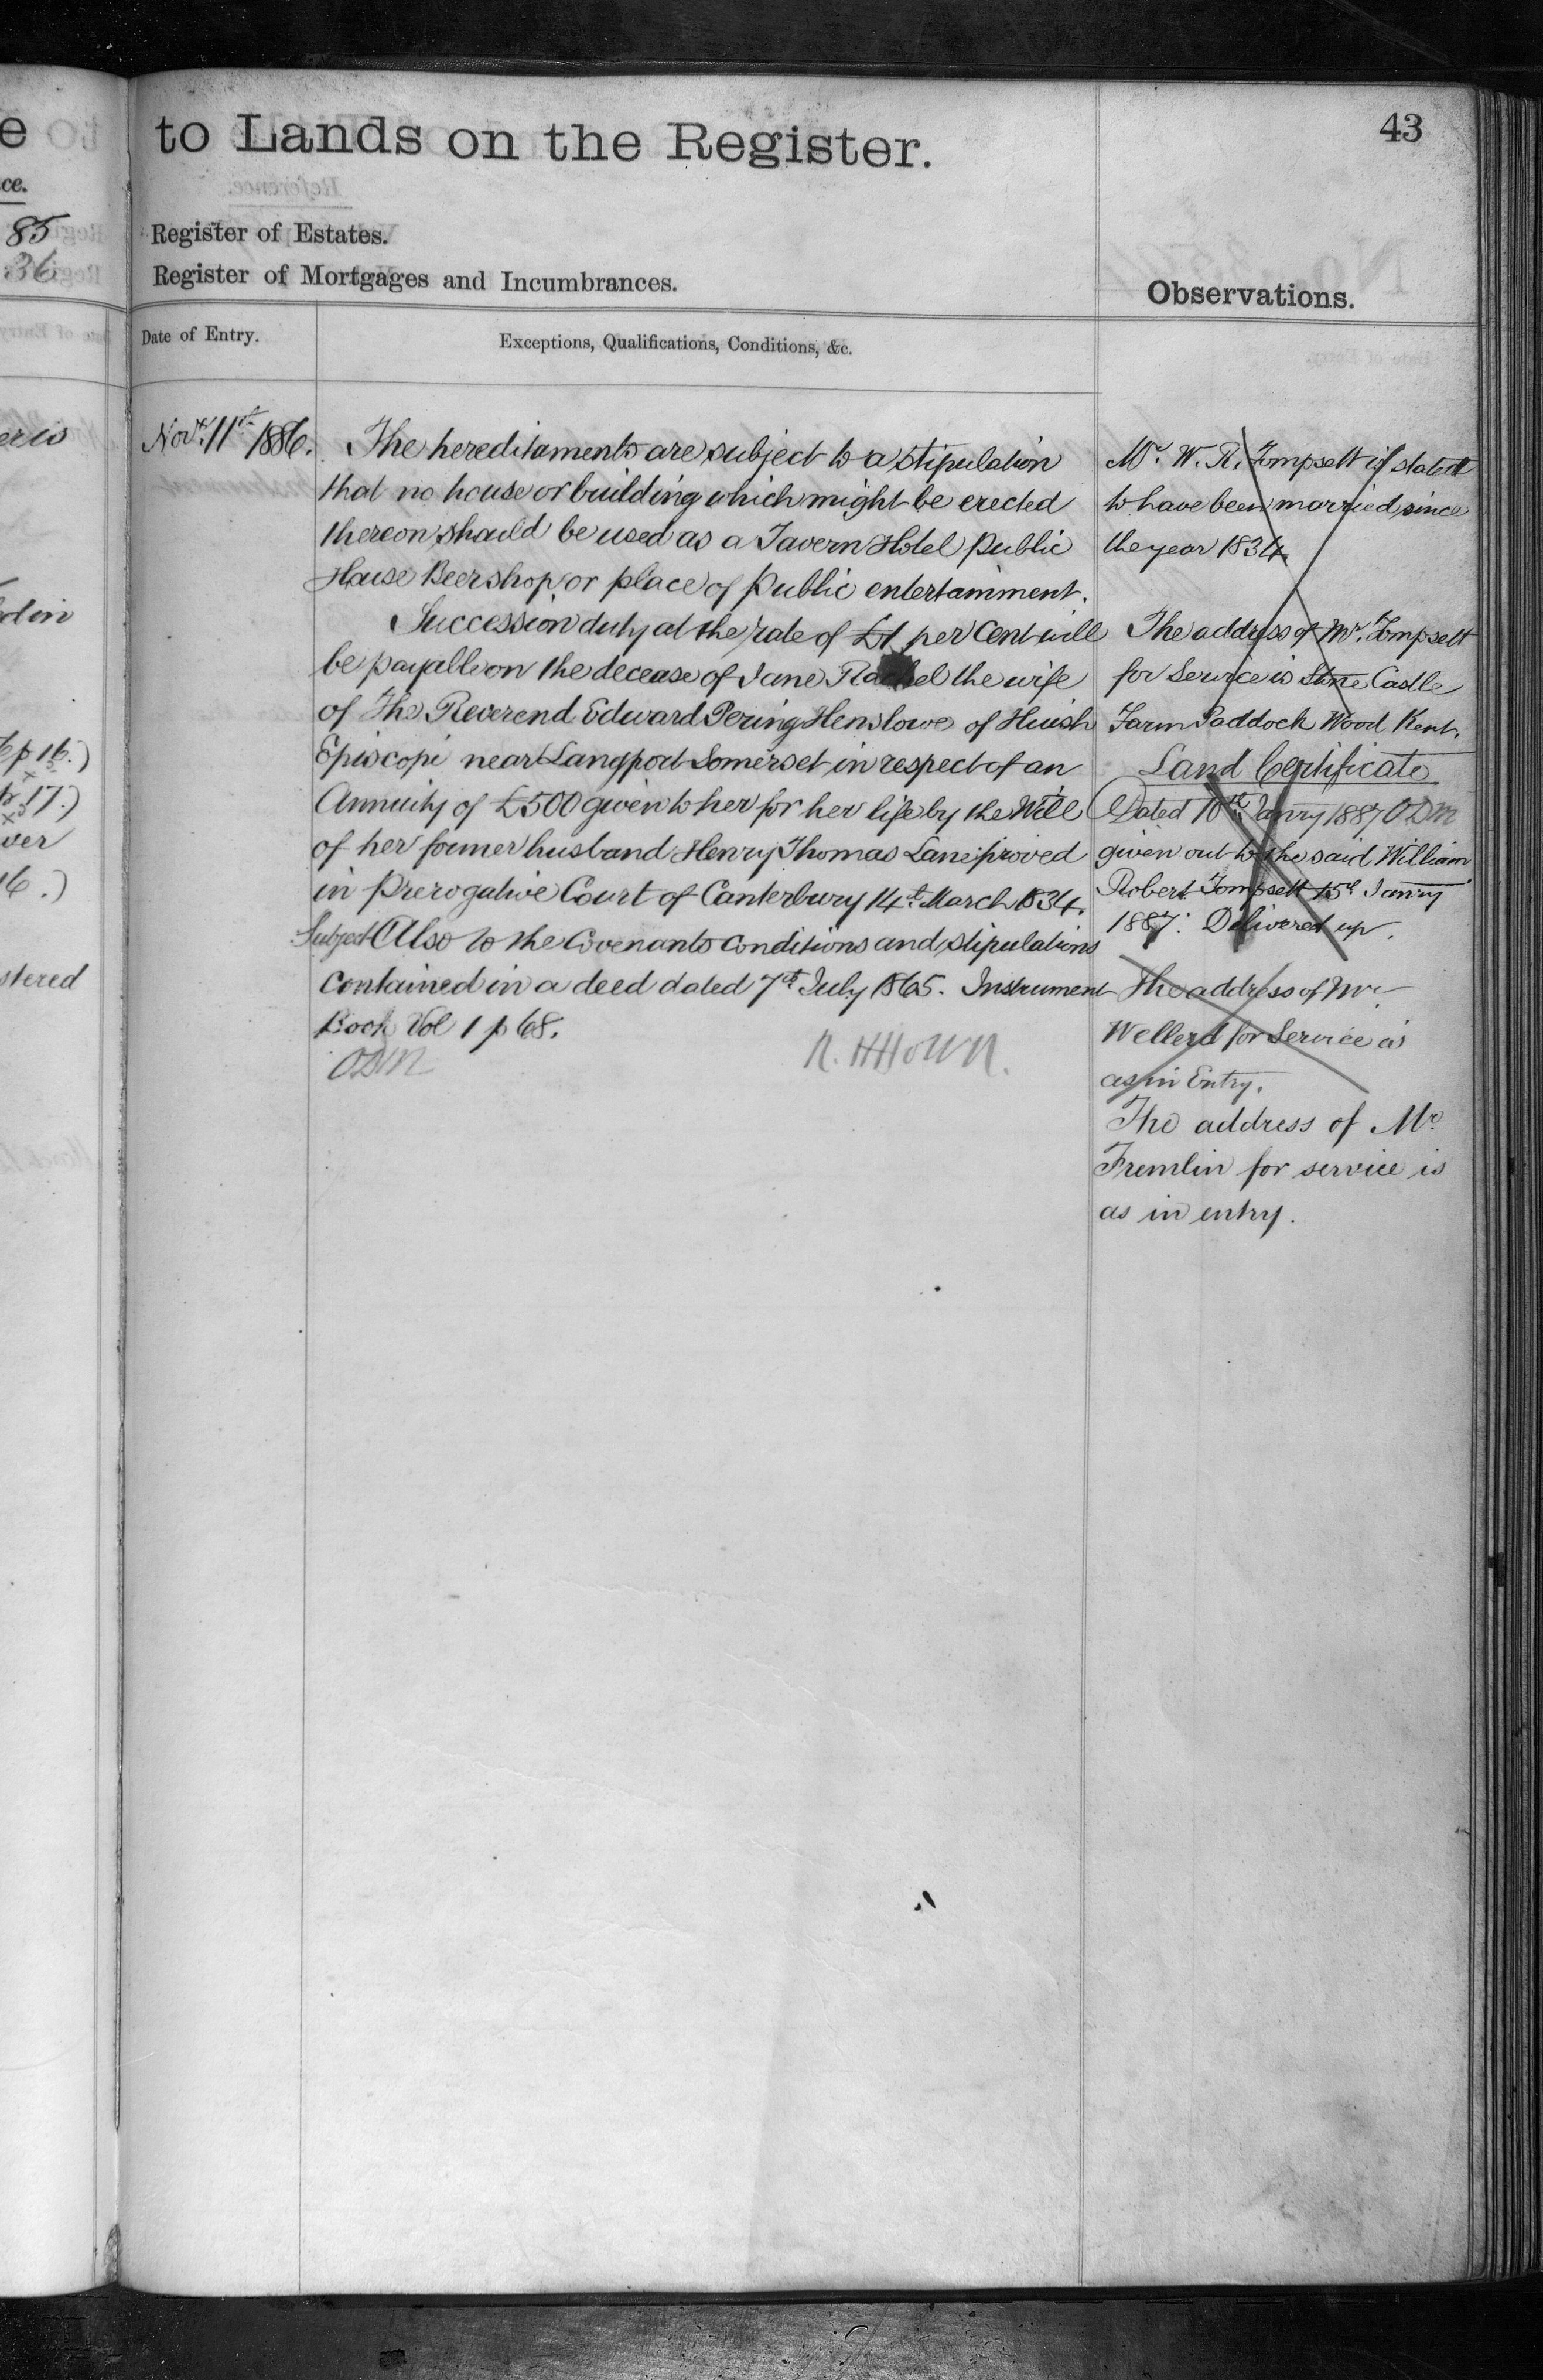 e
ce.
85
36
to Lands on the Register.
43
Register of Estates.
Register of Mortgages and Incumbrances.
Observations.
Date of Entry.
Exceptions, Qualifications, Conditions, &c.
Novr. 11th 1886.
The hereditaments are subject to a stipulation
that no house or building which might be erected
thereon should be used as a Tavern Hotel Public
House Beershop or place of Public entertainment.
Succession duty at the rate of £1 per Cent will
be payable on the decease of Jane Rachel the wife
of The Reverend Edward Pering Henslowe of Huish
Episcopi near Langport Somerset in respect of an
Annuity of £500 given to her for her life by the Will
of her former husband Henry Thomas Lane proved
in Prerogative Court of Canterbury 14th March 1834.
Subject Also to the Covenants conditions and stipulations
contained in a deed dated 7th July 1865. Instrument
Book Vol 1 p 68.
ODM
Mr. W. R. Tompsett is stated
to have been married since
the year 1834
The address of Mr. Tompsett
for Service is Stone Castle
Farm Paddock Wood Kent.
Land Certificate
Dated 10th Janry 1887 ODM
given out to the said William
Robert Tompsett 15th Janry
1887. Delivered up.
The address of Mr
Wellerd for Service is
as in Entry.
The address of Mr.
Fremlin for service is
as in entry.
er is
d in
p 16.)
17.)
ver
16.)
stered